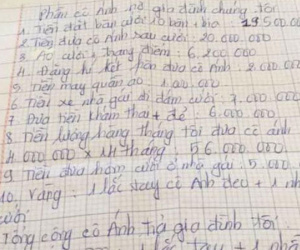 Phần cô Ánh nợ gia đình chúng tôi
1. Tiền đặt bàn cưới 10 bàn + bia 19.500.0
2. Tiền đưa cô Ánh sau cưới : 20.000.000
3. Áo cưới + trang điểm : 6.200.000
4. Đăng kí kết hôn đưa cô Ánh : 2.000.000
5. Tiền may quần áo : 1.000.000
6. Tiền xe nhà gái đi đám cưới : 7.000.000
7. Đưa tiền khám thai + đẻ : 6.000.000
8 Tiền lương hàng tháng tôi đưa cô ánh
4.000.000 x 14 tháng : 56.000.000
9 Tiền đưa hôm cưới ở nhà gái : 5.000.
10. Vàng : 1 lắc tay cô Ánh đeo + 1 nh
cưới
Tổng cộng cô Ánh trả gia đình tôi
1 lắc tay + 1 nhẫ